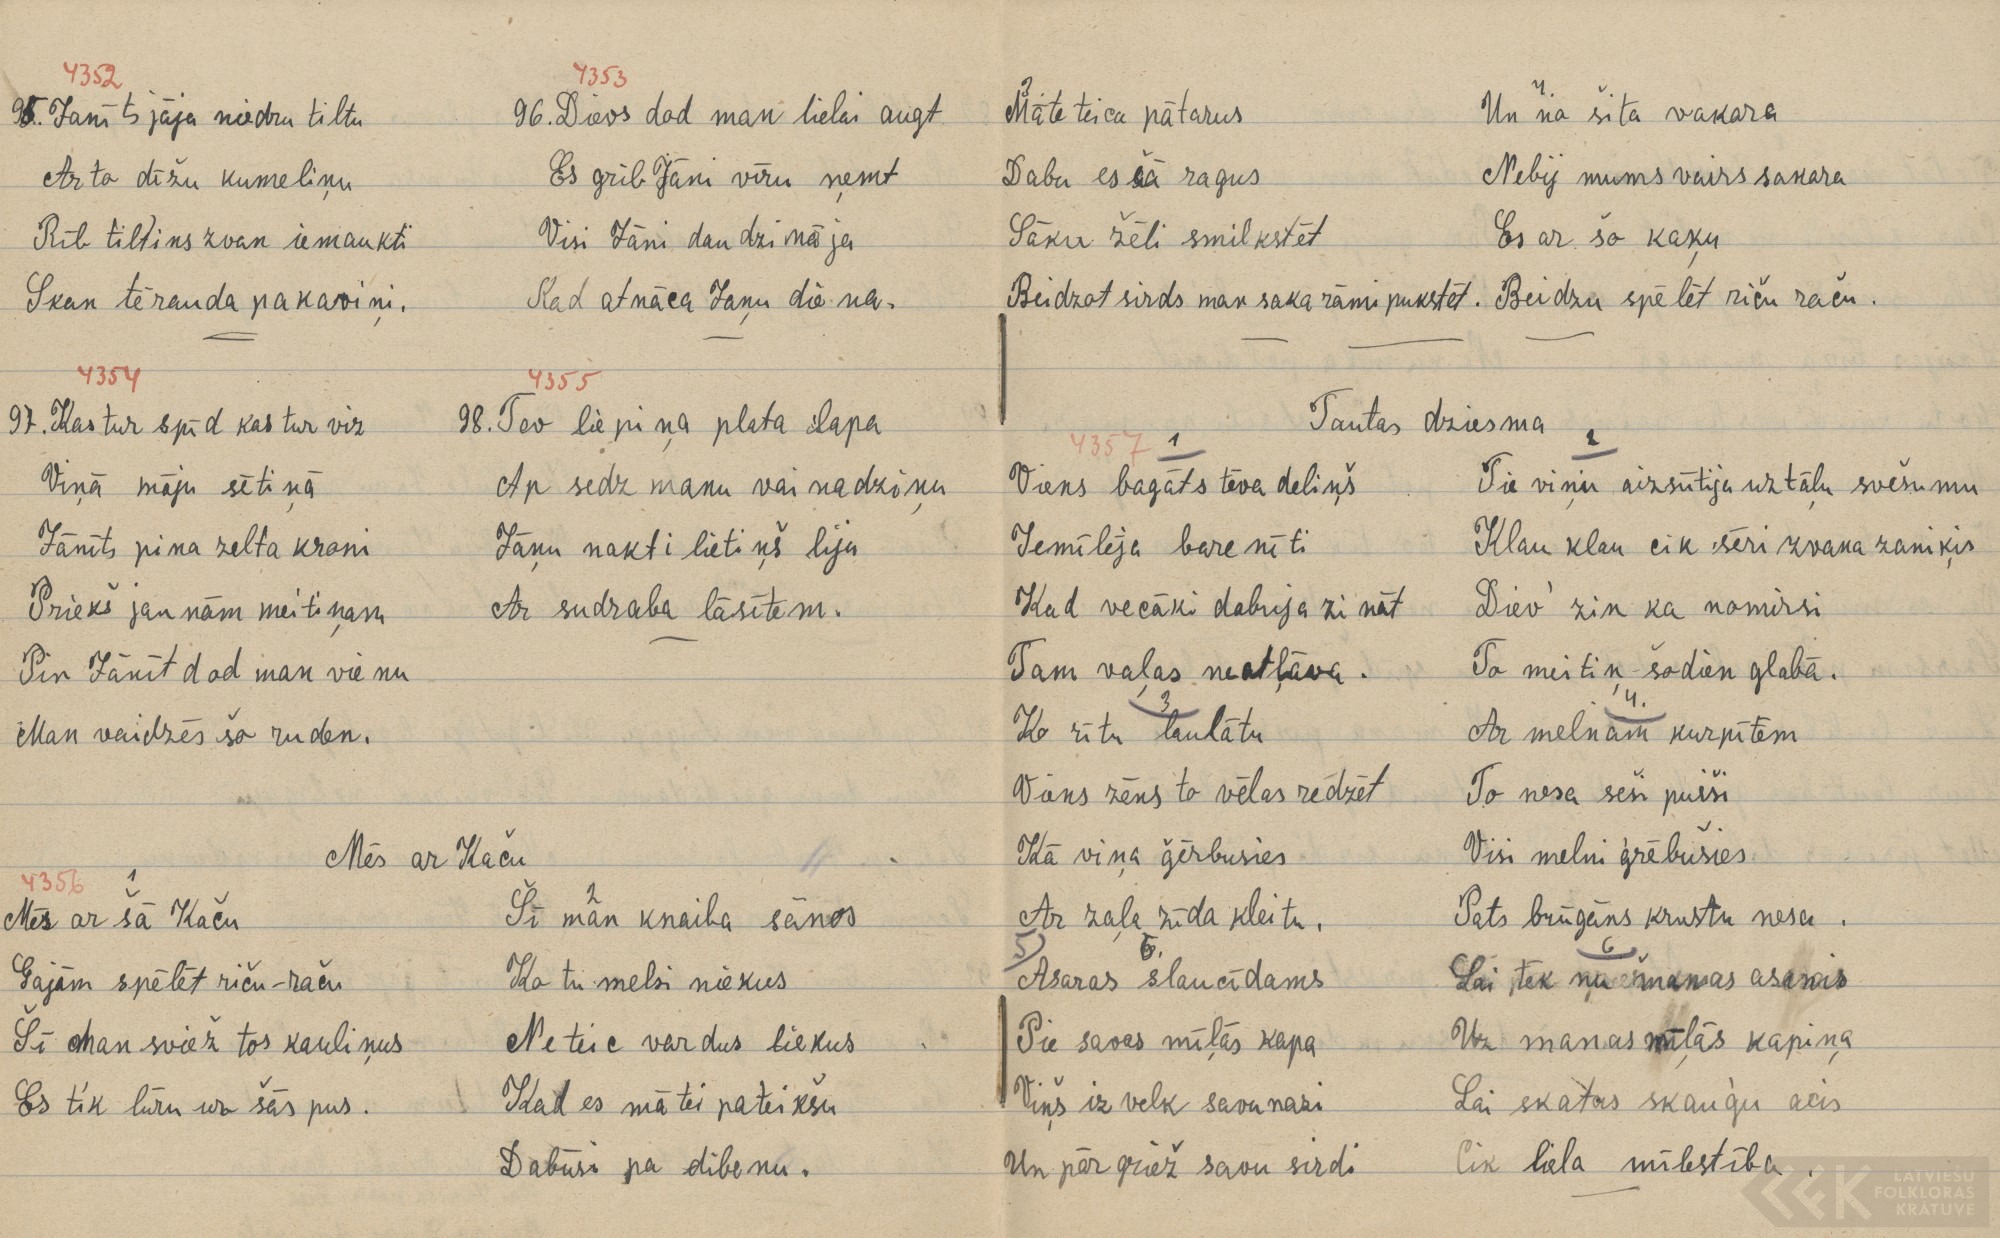 4352
95. Janīts jāja niedru tiltu
Ar to dižu kumeliņu
Rīb tiltiņs zvan iemaukti
Skan tērauda pakaviņi.
4353
96. Dievs dod man lielai augt
Es grib Jāni vīru ņemt
Visi Jāni daudzināja
Kad atnāca Jaņu diena.
4354
97. Kas tur spīd kas tur viz
Viņā māju sētiņā
Jānīts pina zelta kroni
Priekš jaunām meitiņam
Pin Jānīt dod man vienu
Man vaidzēs šo ruden.
4355
98. Tev liepiņa plata lapa
Ap sedz manu vainadziņu
Jāņu nakti lietiņš lija
Ar sudraba lāsītem.
Mēs ar Kaču
4356
1
Mēs ar šā Kaču
Gajām spēlēt riču-raču
Šī man sviež tos kauliņus
Es tik lūru uz šās pus.
2
Šī man knaiba sānos
Ko tu melsi niekus
Ne teic vardus liekus
Kad es mātei pateikšu
Dabūsi pa dibenu.
3
Māte teica pātarus
Dabu es šā ragus
Sāku žēli smilkstēt
Beidzot sirds man saka rāmi pukstēt.
4
Un no šita vakara
Nebij mums vairs sakara
Es ar šo kaķu
Beidzu spēlēt riču raču.
Tautas dziesma
4357
1
Viens bagāts tēva deliņš
Iemīlēja barenīti
Kad vecāki dabuja zināt
Tam vaļas neatļāva.
2
Tie viņu aizsūtija uz tāļu svešumu
Klau klau cik sēri zvana zaniķis
Diev' zin ka nomirsi
To meitiņ šodien glabā.
3
Ko rītu laulātu
Viens zēns to vēlas redzēt
Kā viņa ģērbusies
Ar zaļa zīda kleitu.
4.
Ar melnām kurpītem
To nesa seši puiši
Visi melni ģrēbušies
Pats brūgāns krustu nesa.
5)
5.
Asaras slaucīdams
Pie savas mīļās kapa
Viņš izvelk savu nazi
Un pārgriež savu sirdi
6
Lai tek nu manas asinis
Uz manas mīļās kapiņa
Lai skatas skauģu acis
Cik liela mīlestība.
LATVIEŠU
FOLKLORAS
KRĀTUVE